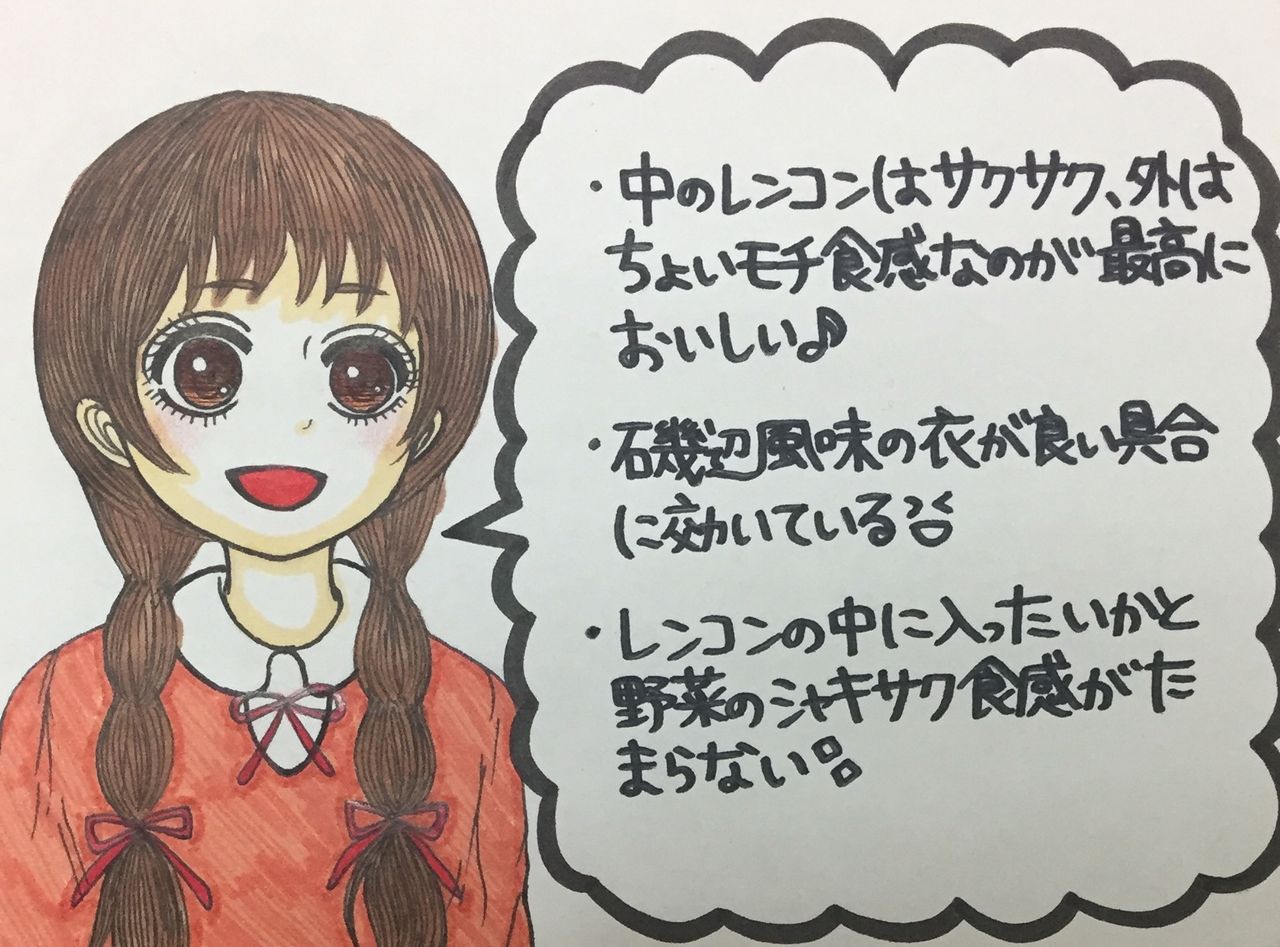 ・中のレンコンはサクサク、外は
ちょいモチ食感なのが最高に
おいしい♪
・石幾辺風味の衣が良い具合
に効いている
・レンコンの中に入ったいかと
野菜のシャキサク食感がた
まらない